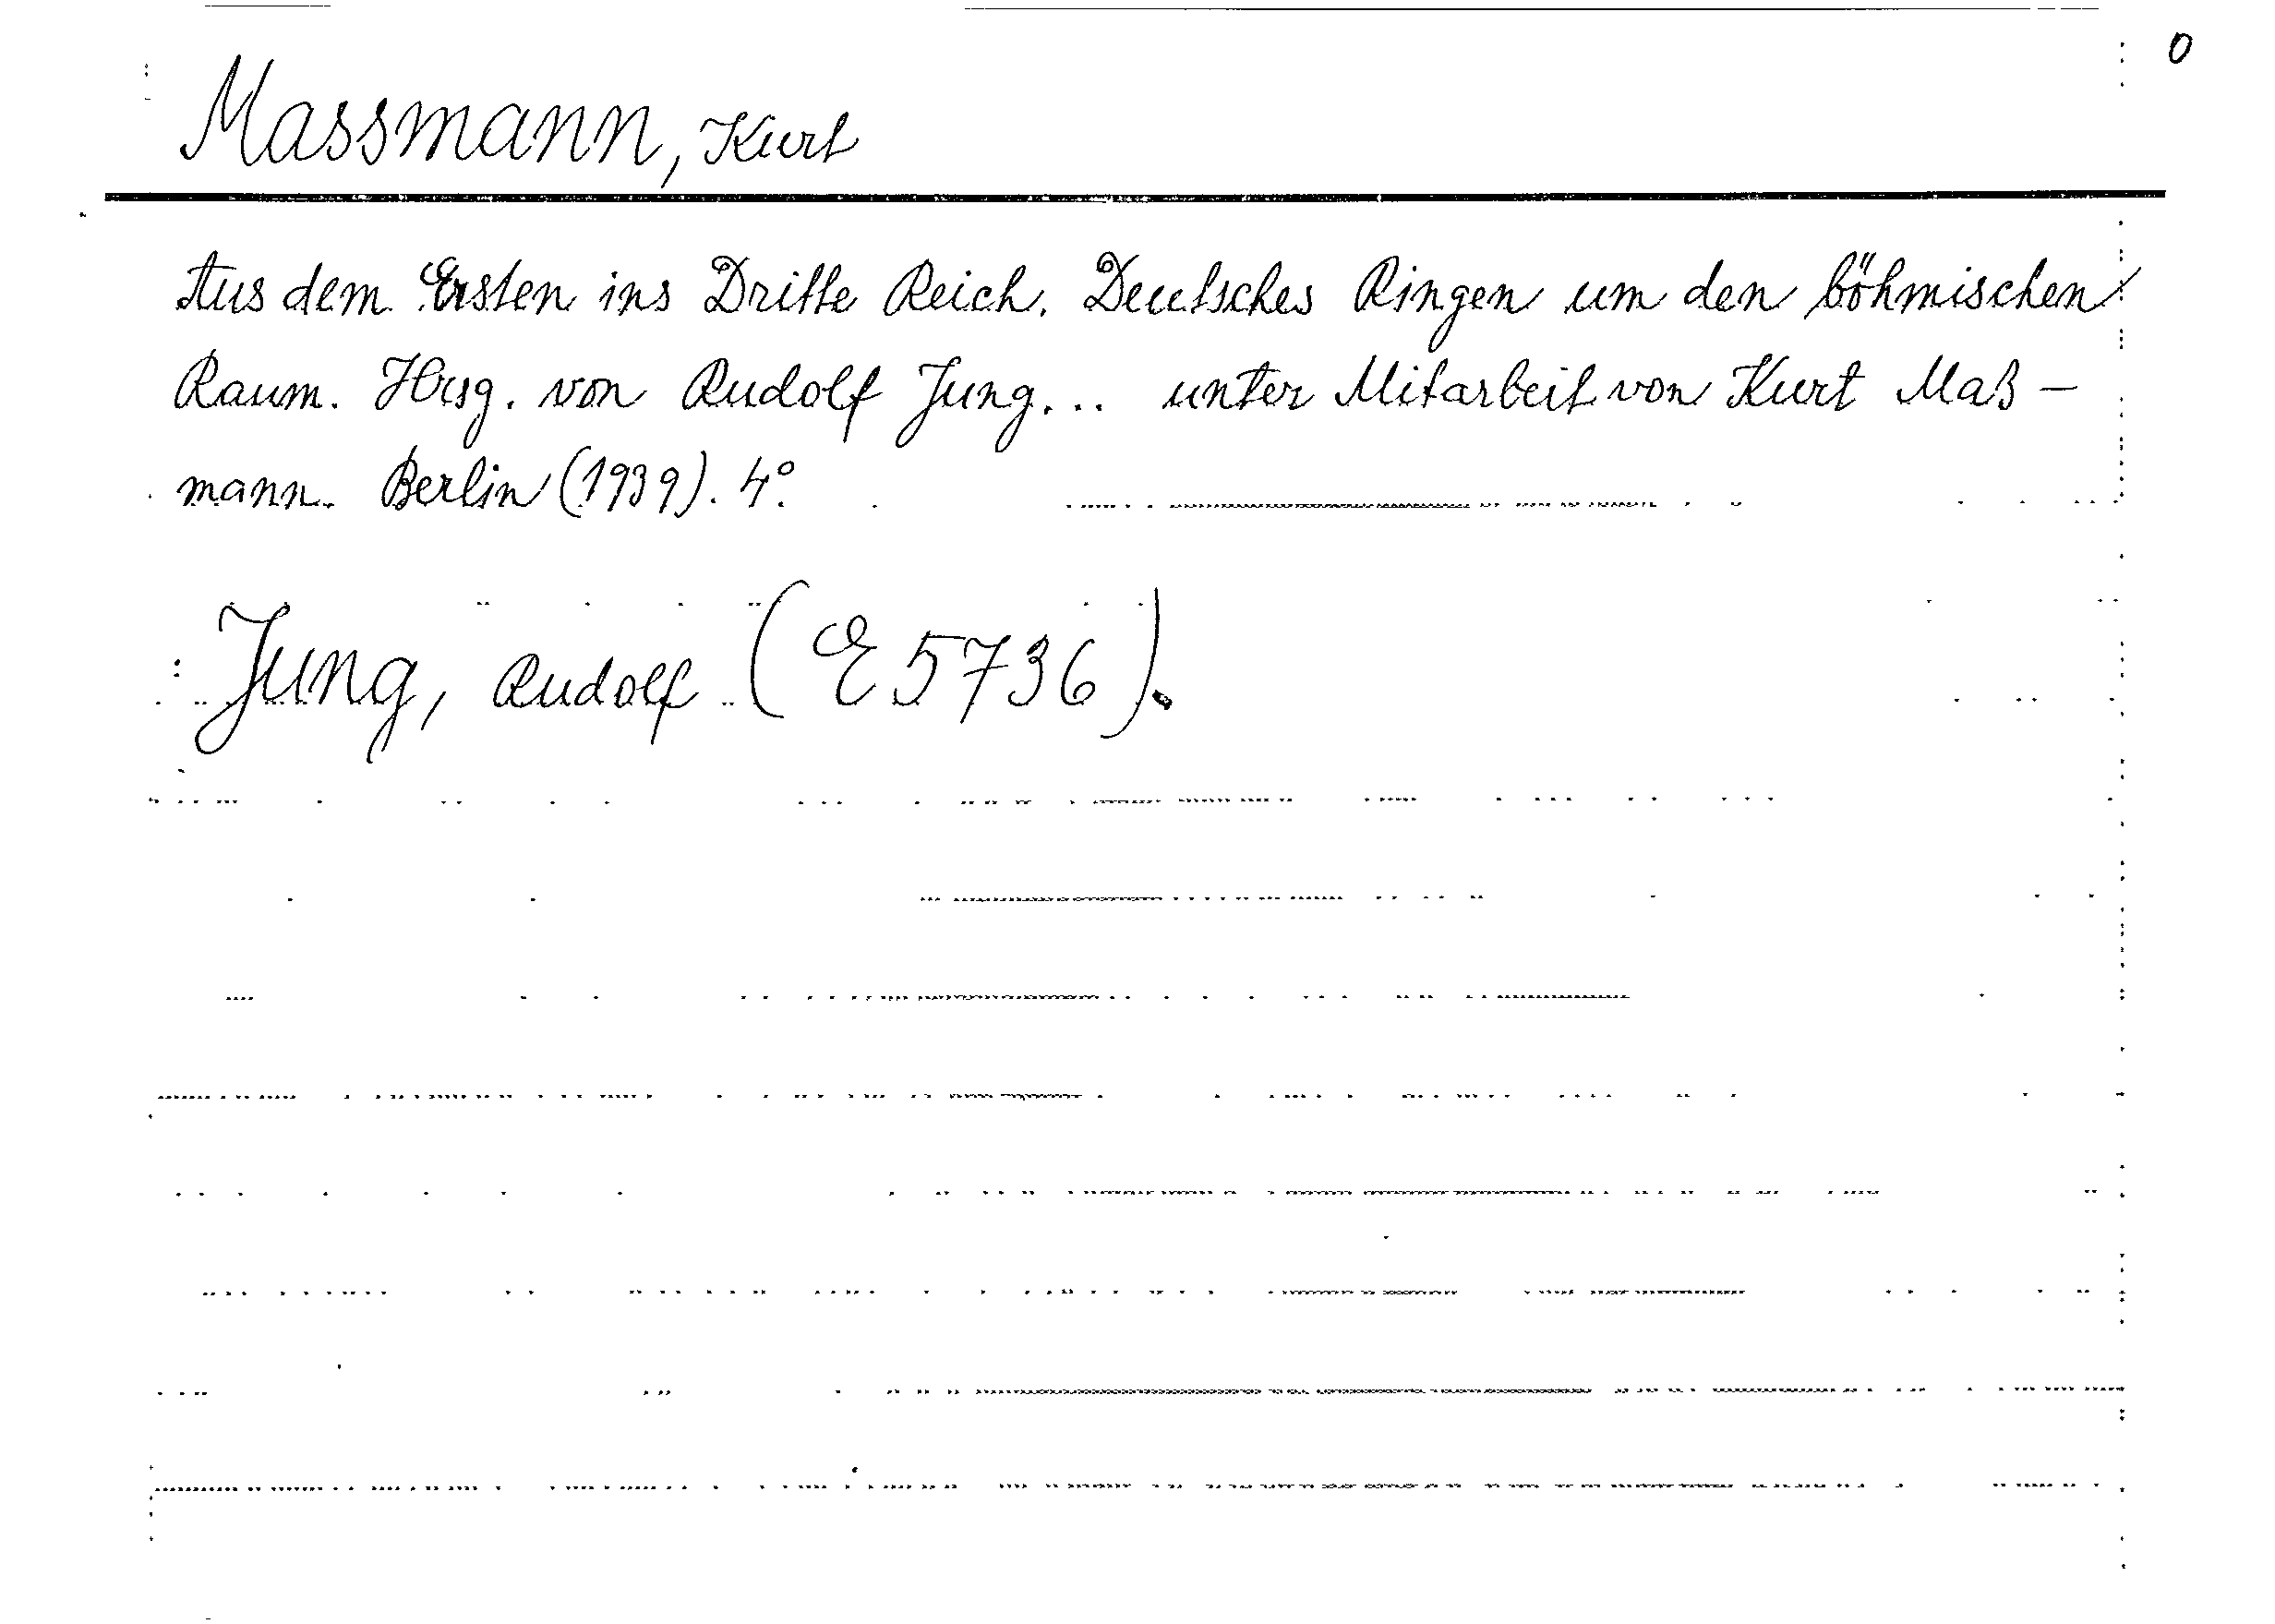 0
Massmann, Kurt
Aus dem Ersten ins Dritte Reich. Deutsches Ringen um den böhmischen
Raum. Hrsg. von Rudolf Jung... unter Mitarbeit von Kurt Maß-
mann. Berlin (1939). 4°.
Jung, Rudolf (E 5736).